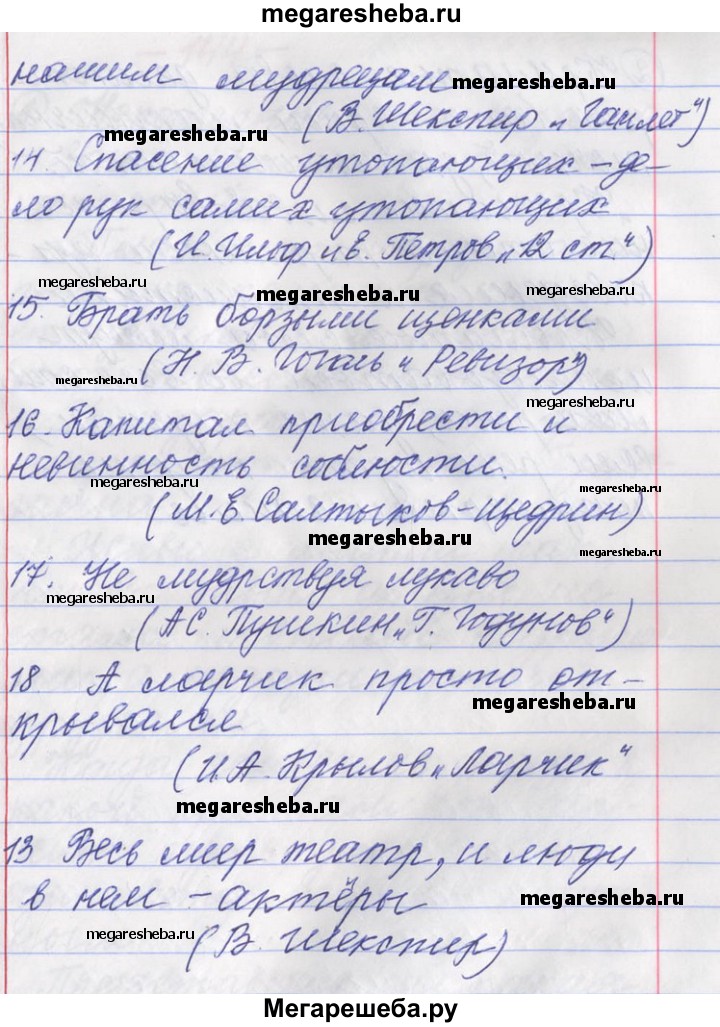 megaresheba.ru
нашим мудрецам megaresheba.ru
megaresheba.ru (В. Шекспир „Гамлет")
14. Спасение утопающих – де-
ло рук самих утопающих
(И. Ильф и Е. Петров „12 ст.")
megaresheba.ru megaresheba.ru megaresheba.ru
15. Брать борзыми щенками
megaresheba.ru (Н. В. Гоголь „Ревизор")
megaresheba.ru
16. Капитал приобрести и
невинность соблюсти.
megaresheba.ru megaresheba.ru
(М. Е. Салтыков-Щедрин)
megaresheba.ru megaresheba.ru
17. Не мудрствуя лукаво
megaresheba.ru
(А С. Пушкин „Г. Годунов")
18 А ларчик просто от-
крывался megaresheba.ru
(И.А. Крылов „Ларчик"
megaresheba.ru
13 Весь мир театр, и люди
в нем – актёры megaresheba.ru
megaresheba.ru (В. Шекспир)
Мегарешеба.ру